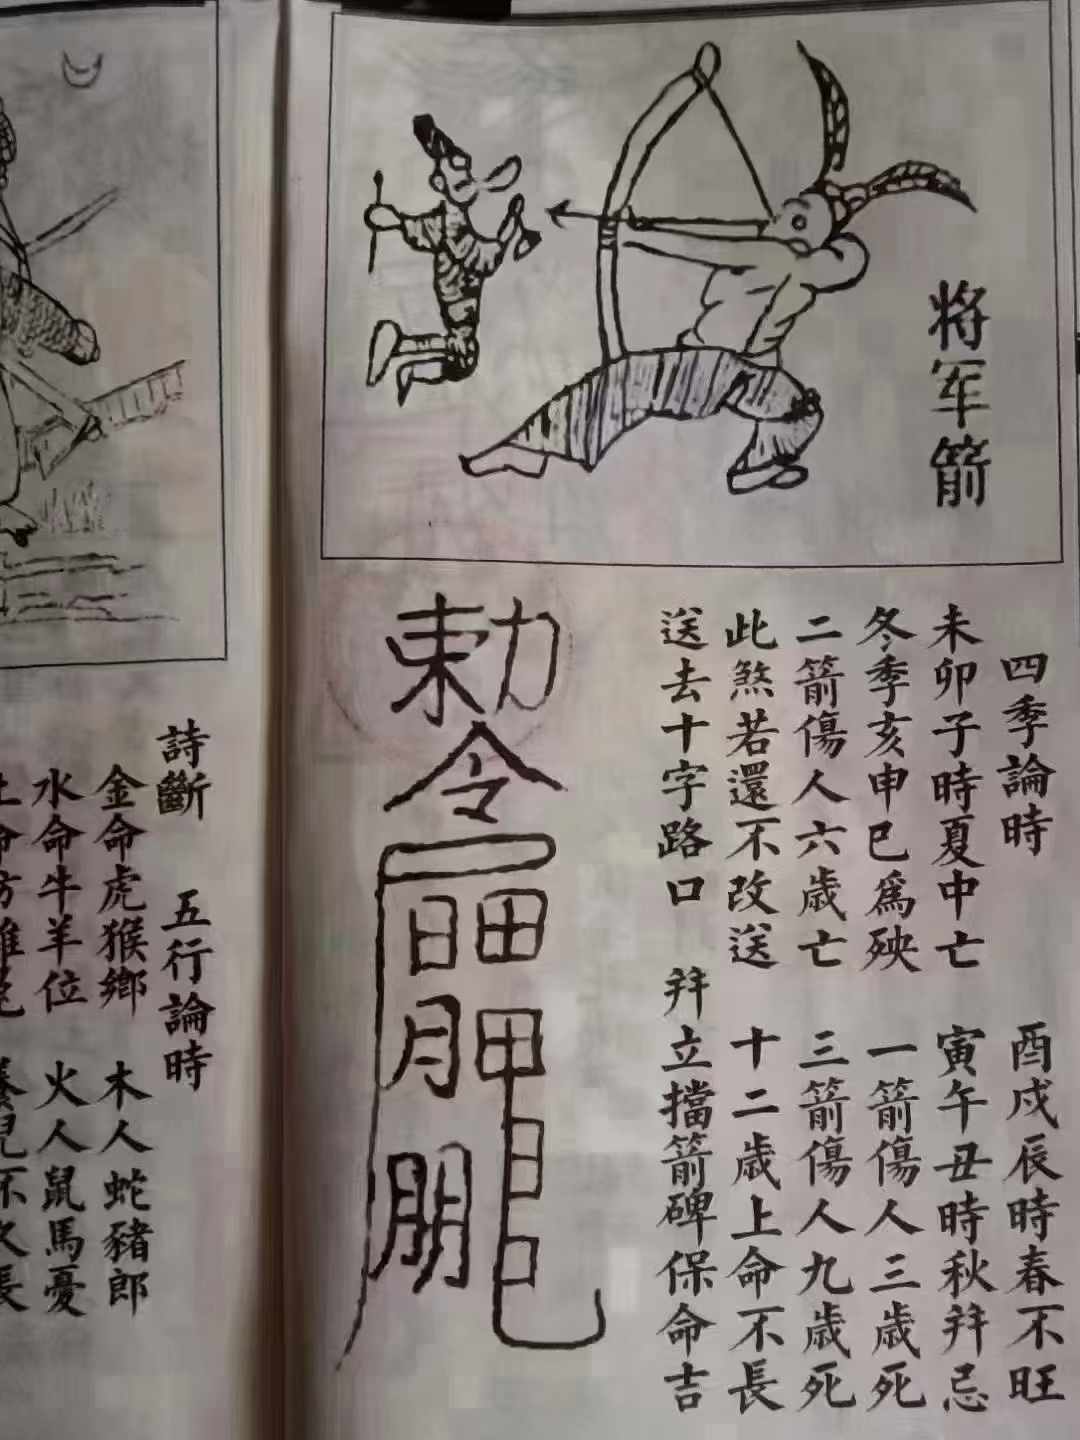 将军箭
四季論時 酉戍辰時春不旺
未卯子時夏中亡 寅午丑時秋幷忌
冬季亥申巳為殃 一箭傷人三歲死
二箭傷人六歲亡 三箭傷人九歲死
此煞若還不改送 十二歲上命不長
送去十字路口 幷立擋箭碑保命吉
勅令
日田
月甲
朋
詩斷 五行論時
金命虎猴鄉 木人蛇豬郎
水命牛羊位 火人鼠馬憂
土命防雞兔 養兒不久長